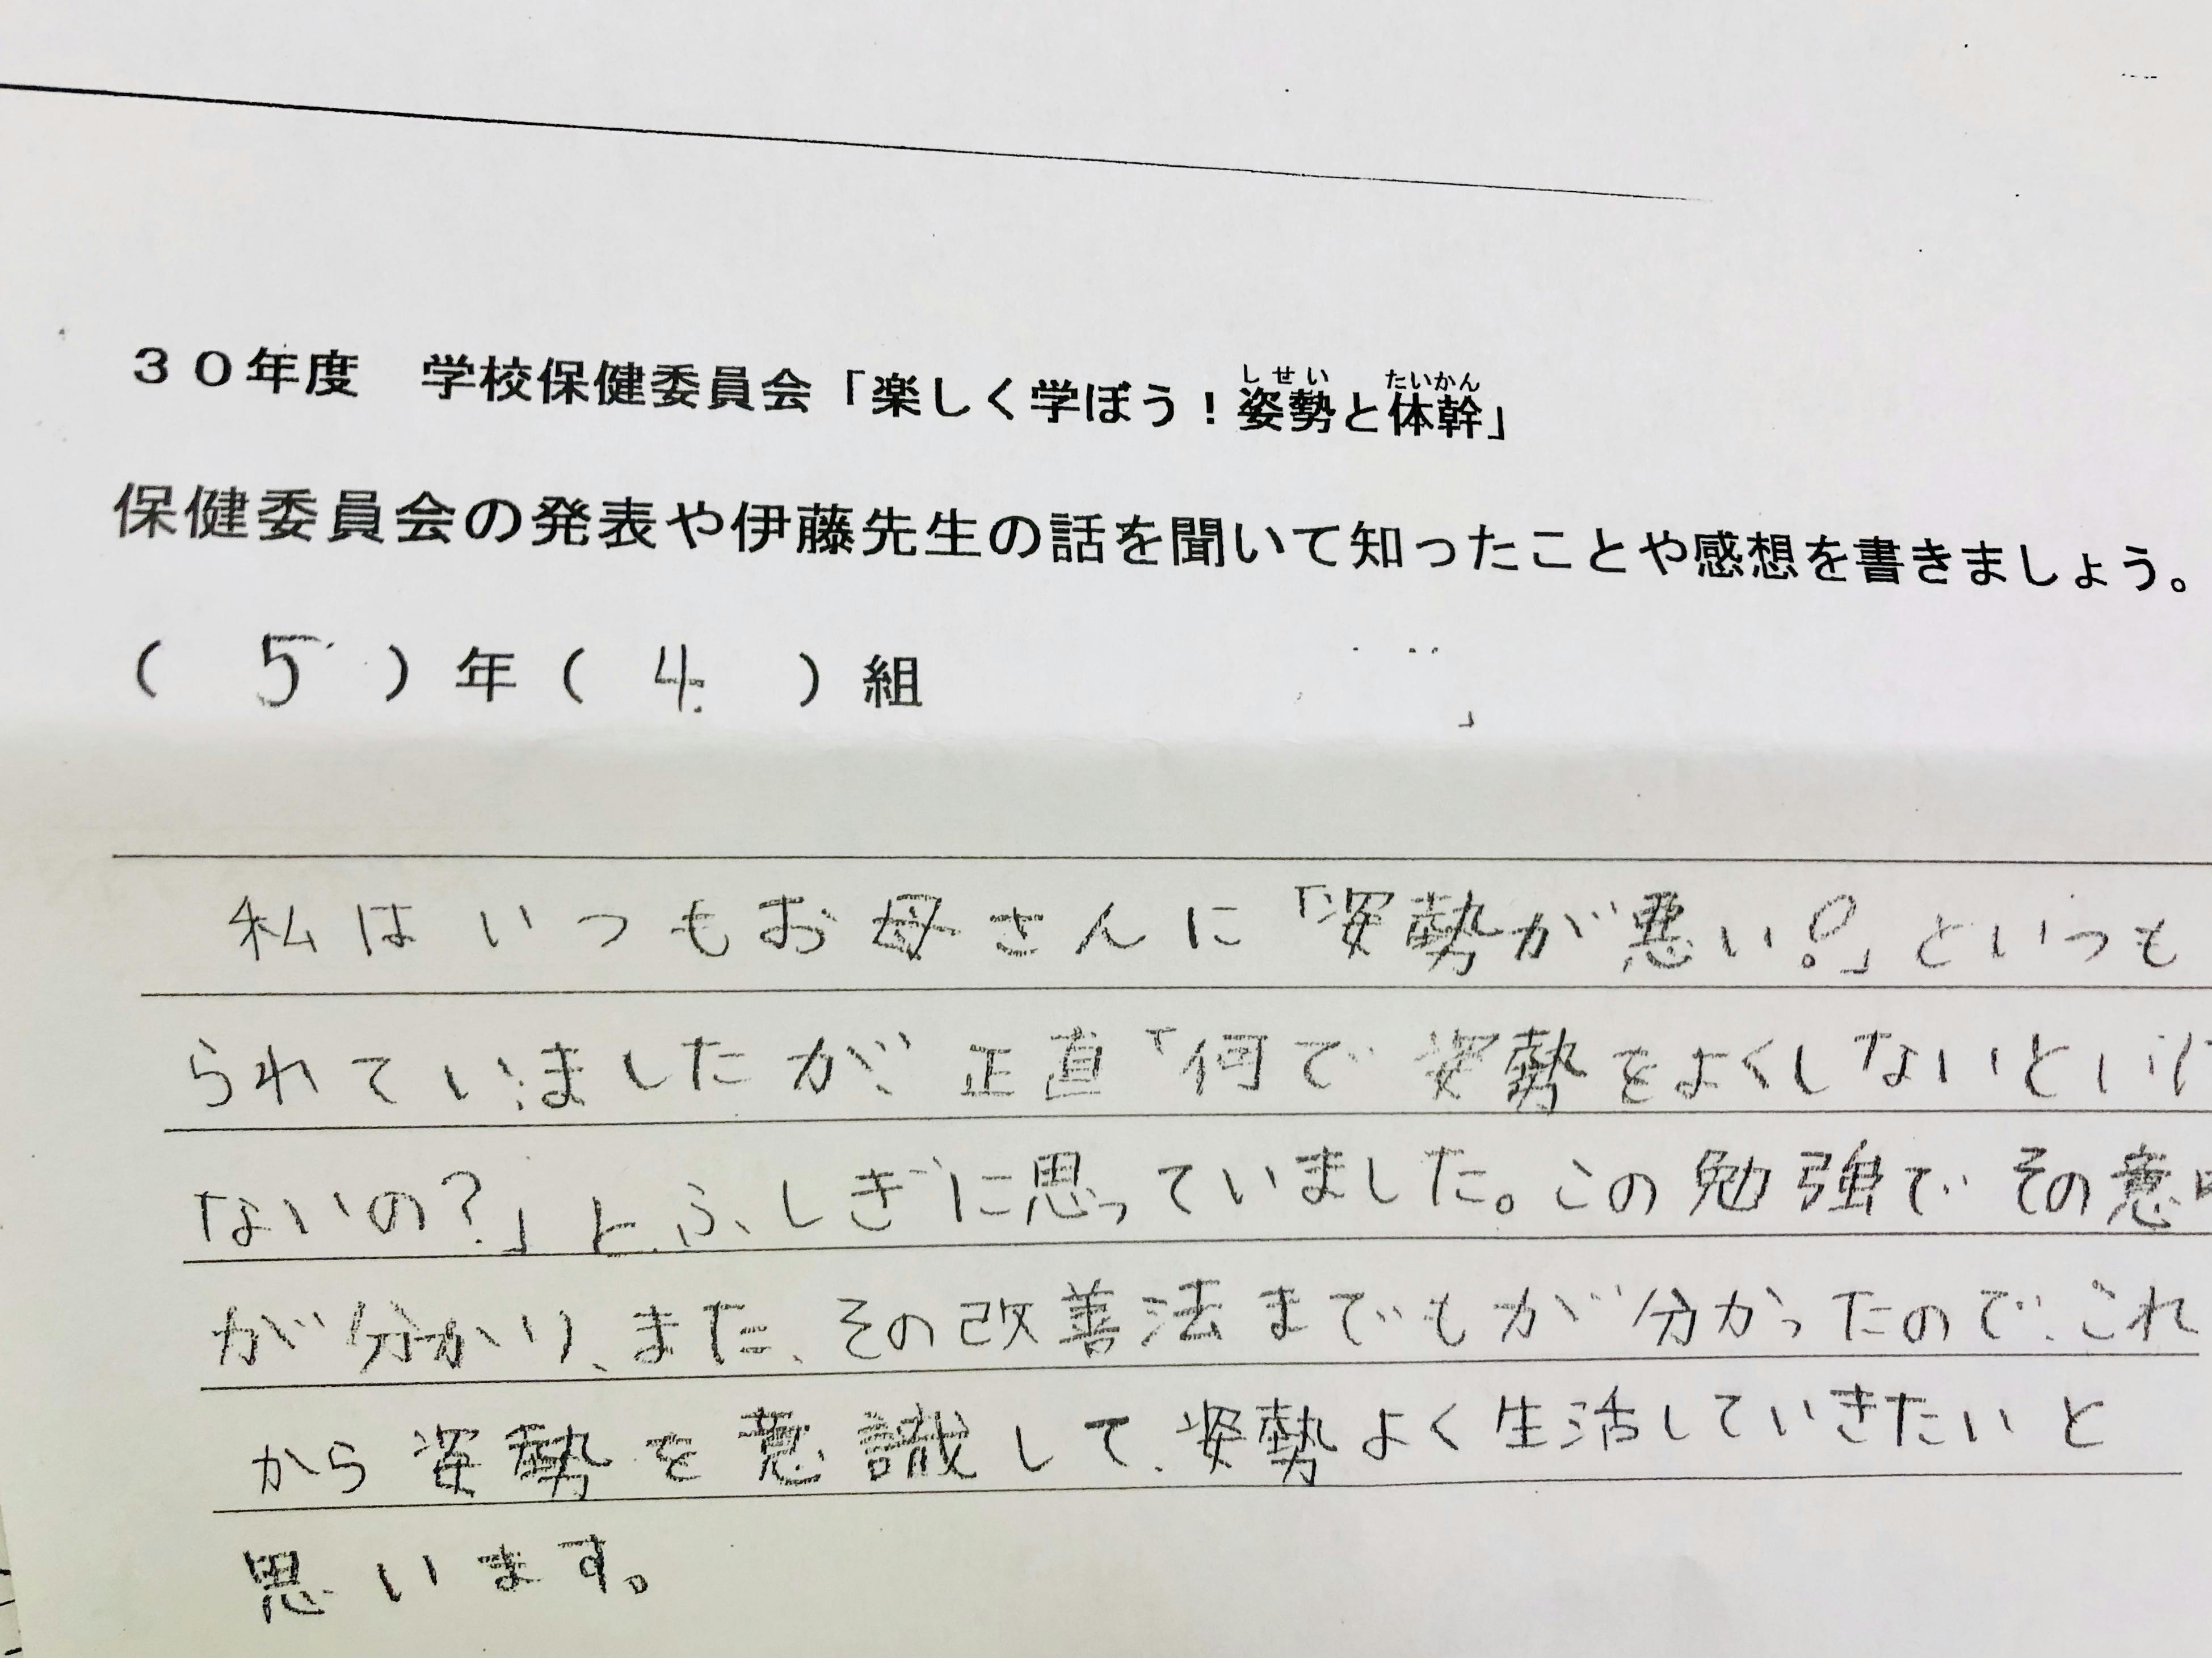 ３０年度　学校保健委員会「楽しく学ぼう！姿勢と体幹」
しせい　たいかん
保健委員会の発表や伊藤先生の話を聞いて知ったことや感想を書きましょう。
（　5　）年（　4　）組
私はいつもお母さんに「姿勢が悪い!」といつも
られていましたが、正直「何で姿勢をよくしないとい
ないの?」とふしぎに思っていました。この勉強でその意
が分かり、また、その改善法までもが分かったので、これ
から姿勢を意識して、姿勢よく生活していきたいと
思います。